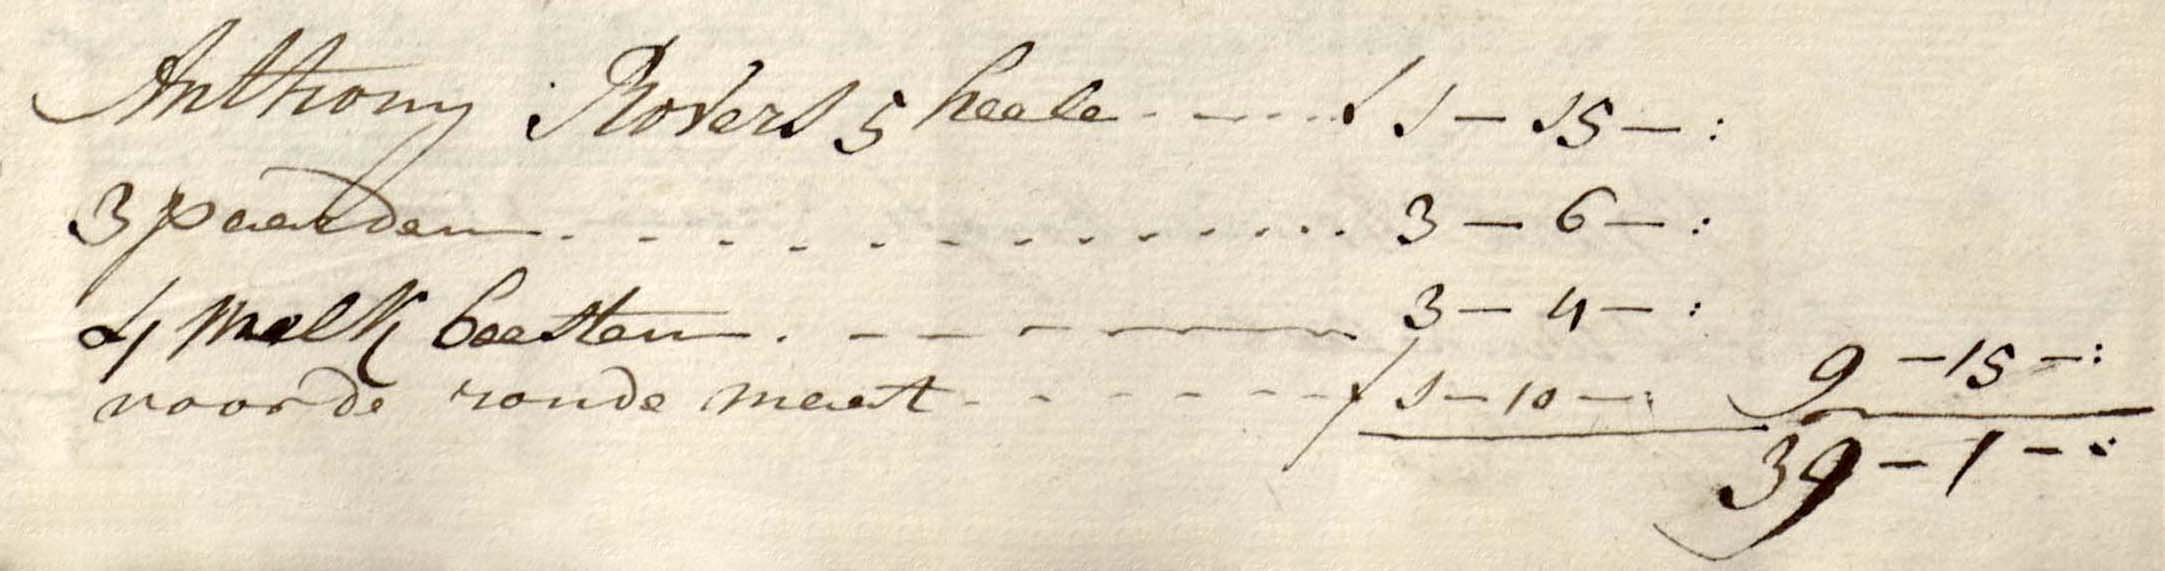 Anthony Rovers 5 heele - - - - - - ƒ 1 - 15 - :
3 paarden - - - - - - - - - - - - 3 - 6 - :
4 melk beesten . - - - - - 3 - 4 - :
9 - 15 - :
voor de ronde maat - - - - - - ƒ 1 - 10 - :
39 - 1 - :